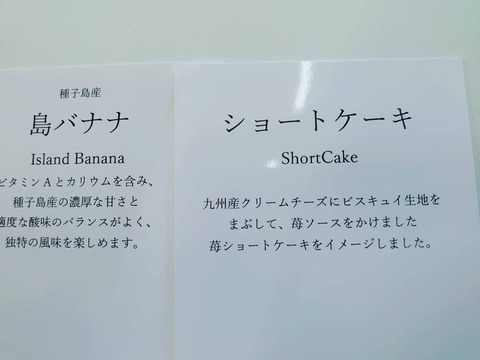 種子島産
島バナナ
Island Banana
ビタミンAとカリウムを含み、
種子島産の濃厚な甘さと
適度な酸味のバランスがよく、
独特の風味を楽しめます。
ショートケーキ
ShortCake
九州産クリームチーズにビスキュイ生地を
まぶして、苺ソースをかけました
苺ショートケーキをイメージしました。